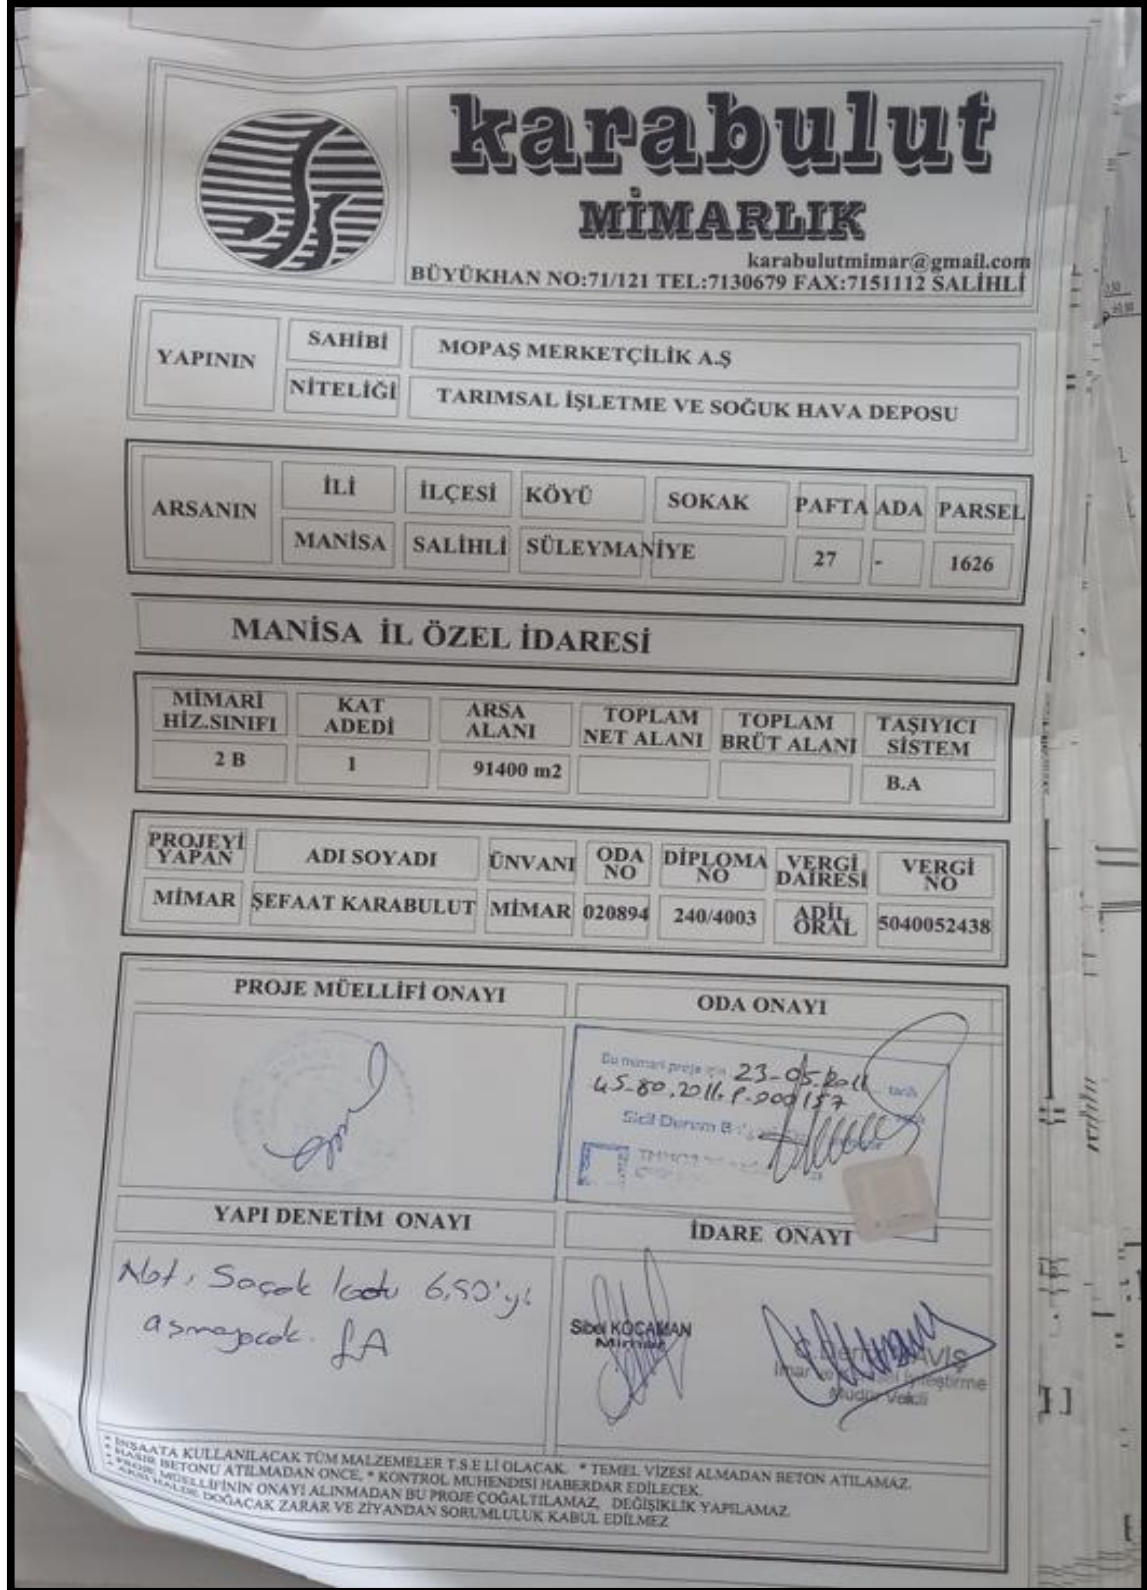 karabulut
MİMARLIK
karabulutmimar@gmail.com
BÜYÜKHAN NO:71/121 TEL:7130679 FAX:7151112 SALİHLİ
YAPININ
SAHİBİ
MOPAŞ MERKETÇİLİK A.Ş
NİTELİĞİ
TARIMSAL İŞLETME VE SOĞUK HAVA DEPOSU
ARSANIN
İLİ İLÇESİ KÖYÜ SOKAK PAFTA ADA PARSEL
MANİSA SALİHLİ SÜLEYMANİYE 27 - 1626
MANİSA İL ÖZEL İDARESİ
MİMARİ HİZ.SINIFI KAT ADEDİ ARSA ALANI TOPLAM NET ALANI TOPLAM BRÜT ALANI TAŞIYICI SİSTEM
2 B 1 91400 m2 B.A
PROJEYİ YAPAN ADI SOYADI ÜNVANI ODA NO DİPLOMA NO VERGİ DAİRESİ VERGİ NO
MİMAR ŞEFAAT KARABULUT MİMAR 020894 240/4003 ADİL ORAL 5040052438
PROJE MÜELLİFİ ONAYI ODA ONAYI
Bu mimari proje için 23-05-2011 tarih
45-80.2011.P-000157
Sicil Durum
YAPI DENETİM ONAYI İDARE ONAYI
Not, Saçak kotu 6,50'yi
aşmayacak.
Sibel KOCAMAN
Mimar
Müdür Vekili
* İNŞAATA KULLANILACAK TÜM MALZEMELER T.S.E Lİ OLACAK. * TEMEL VİZESİ ALMADAN BETON ATILAMAZ.
* HASIR BETONU ATILMADAN ONCE, * KONTROL MUHENDISI HABERDAR EDİLECEK.
* PROJE MÜELLİFİNİN ONAYI ALINMADAN BU PROJE ÇOĞALTILAMAZ, DEĞİŞİKLİK YAPILAMAZ.
DOĞACAK ZARAR VE ZİYANDAN SORUMLULUK KABUL EDİLMEZ